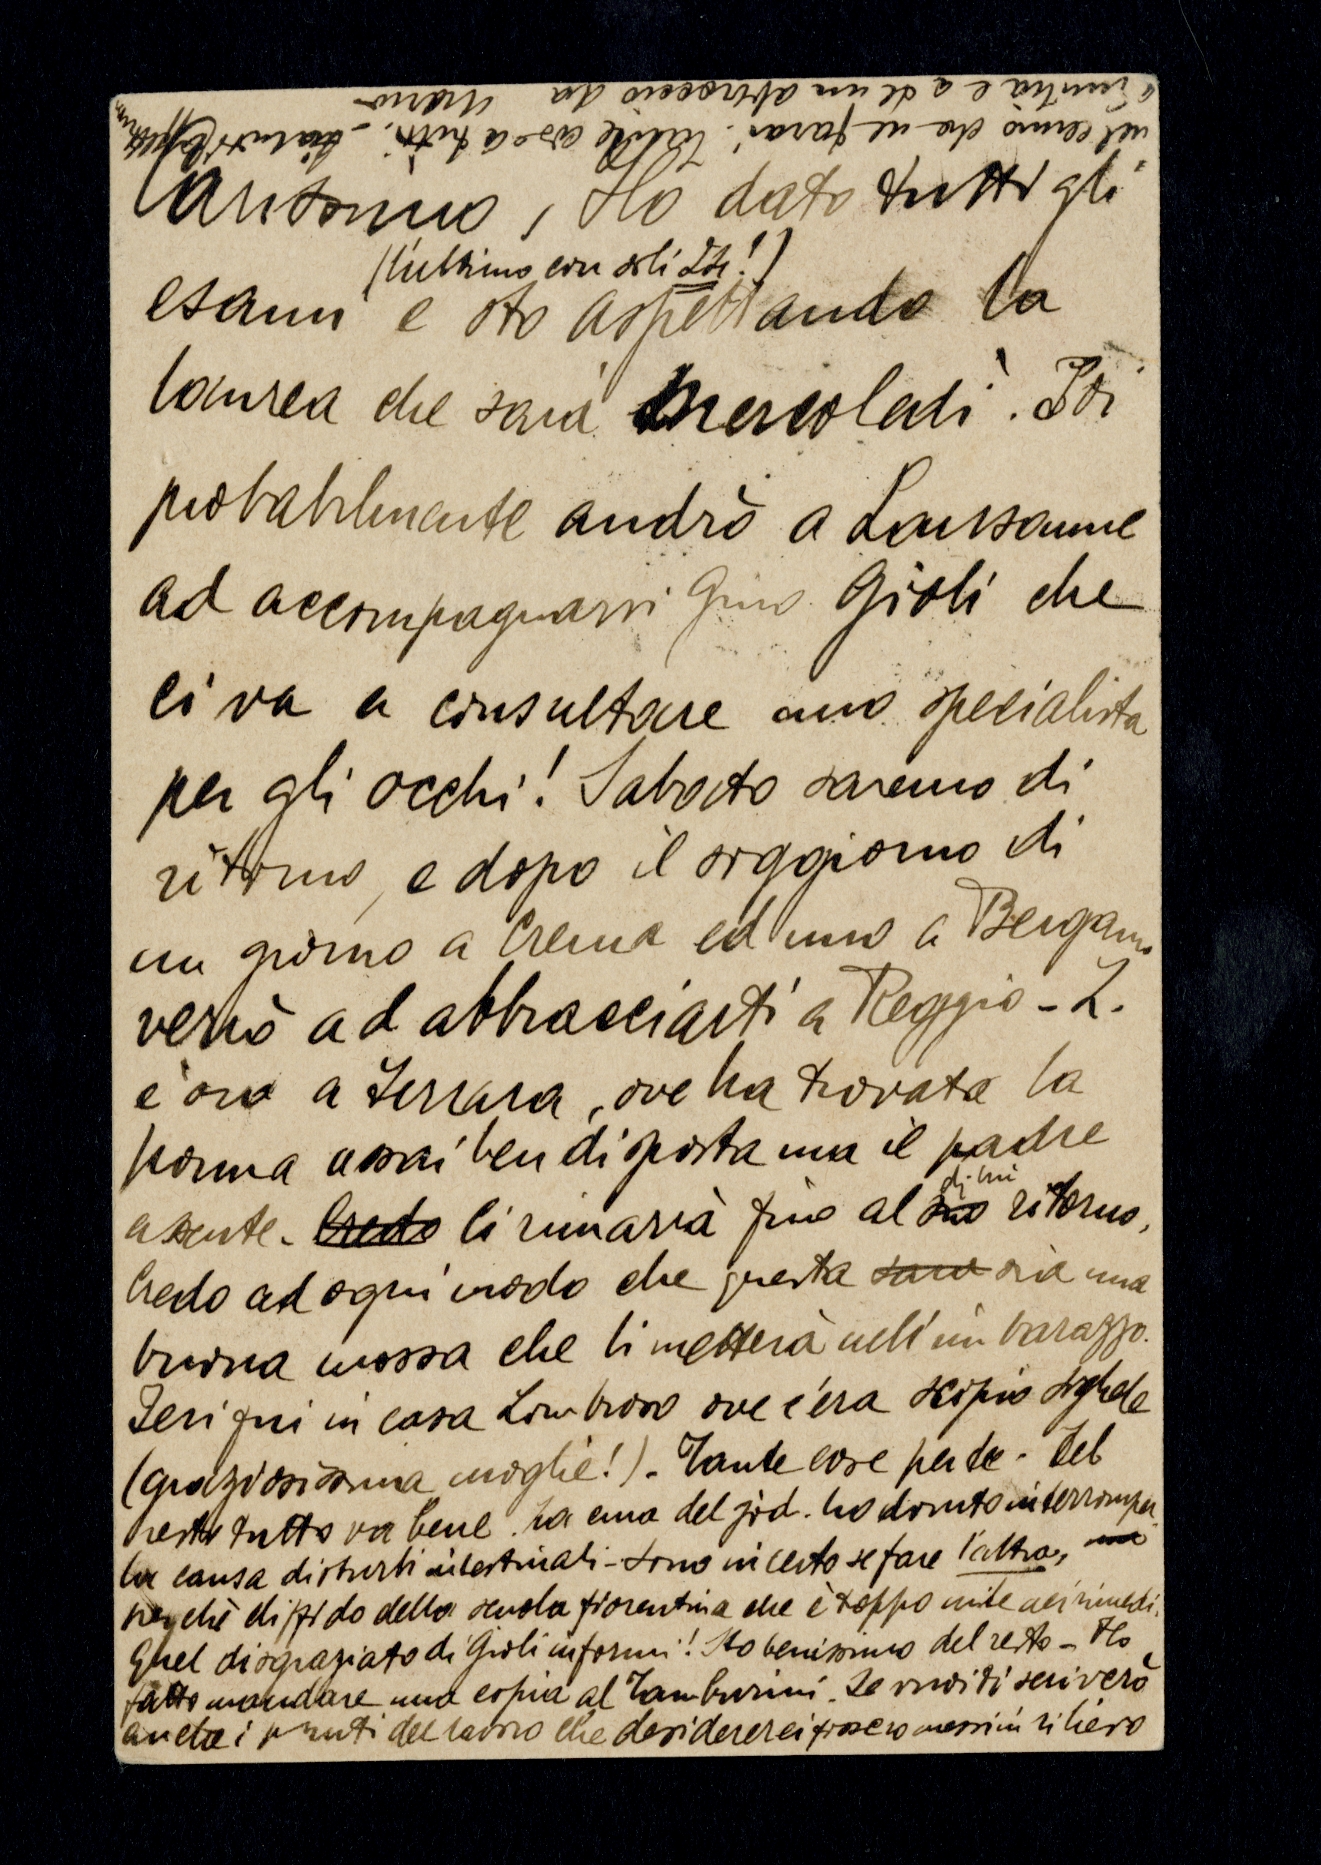 C Antonio, Ho dato tutti gli
(l'ultimo con soli
esami e sto aspettando la
laurea che sarà mercoledì. Poi
probabilmente andrò a Laussanne
ad accompagnarvi Gino Gioli che
ci va a consultare uno specialista
per gli occhi! Sabato saremo di
ritorno, e dopo il soggiorno di
un giorno a Crema ed uno a Bergamo
verrò ad abbracciarti a Reggio - L.
è ora a Ferrara, ove ha trovata la
donna assai ben disposta ma il padre
di lui
assente. Credo Li rimarrà fino al suo ritorno,
Credo ad ogni modo che questa sara sia una
buona mossa che li metterà nell'imbarazzo.
Ieri fui in casa Lombroso ove c'era Scipio Sighele
(graziosissima moglie!). Tante cose per te. Del
resto tutto va bene. La cura del jod. ho dovuto interromper
la causa disturbi intestinali - Sono incerto se fare l'altra, ma
perchè diffido della scuola fiorentina che è troppo mite nei rimedi.
Quel disgraziato di Gioli informi! Sto benissimo del resto - Ho
fatto mandare una copia al Tamburini. Se vuoi ti scriverò
anche i punti del lavoro che desidererei fossero messi in rilievo
nel cenno che ne farai. Tante cose a tutti.
Emilia e a te un abbraccio da Mario